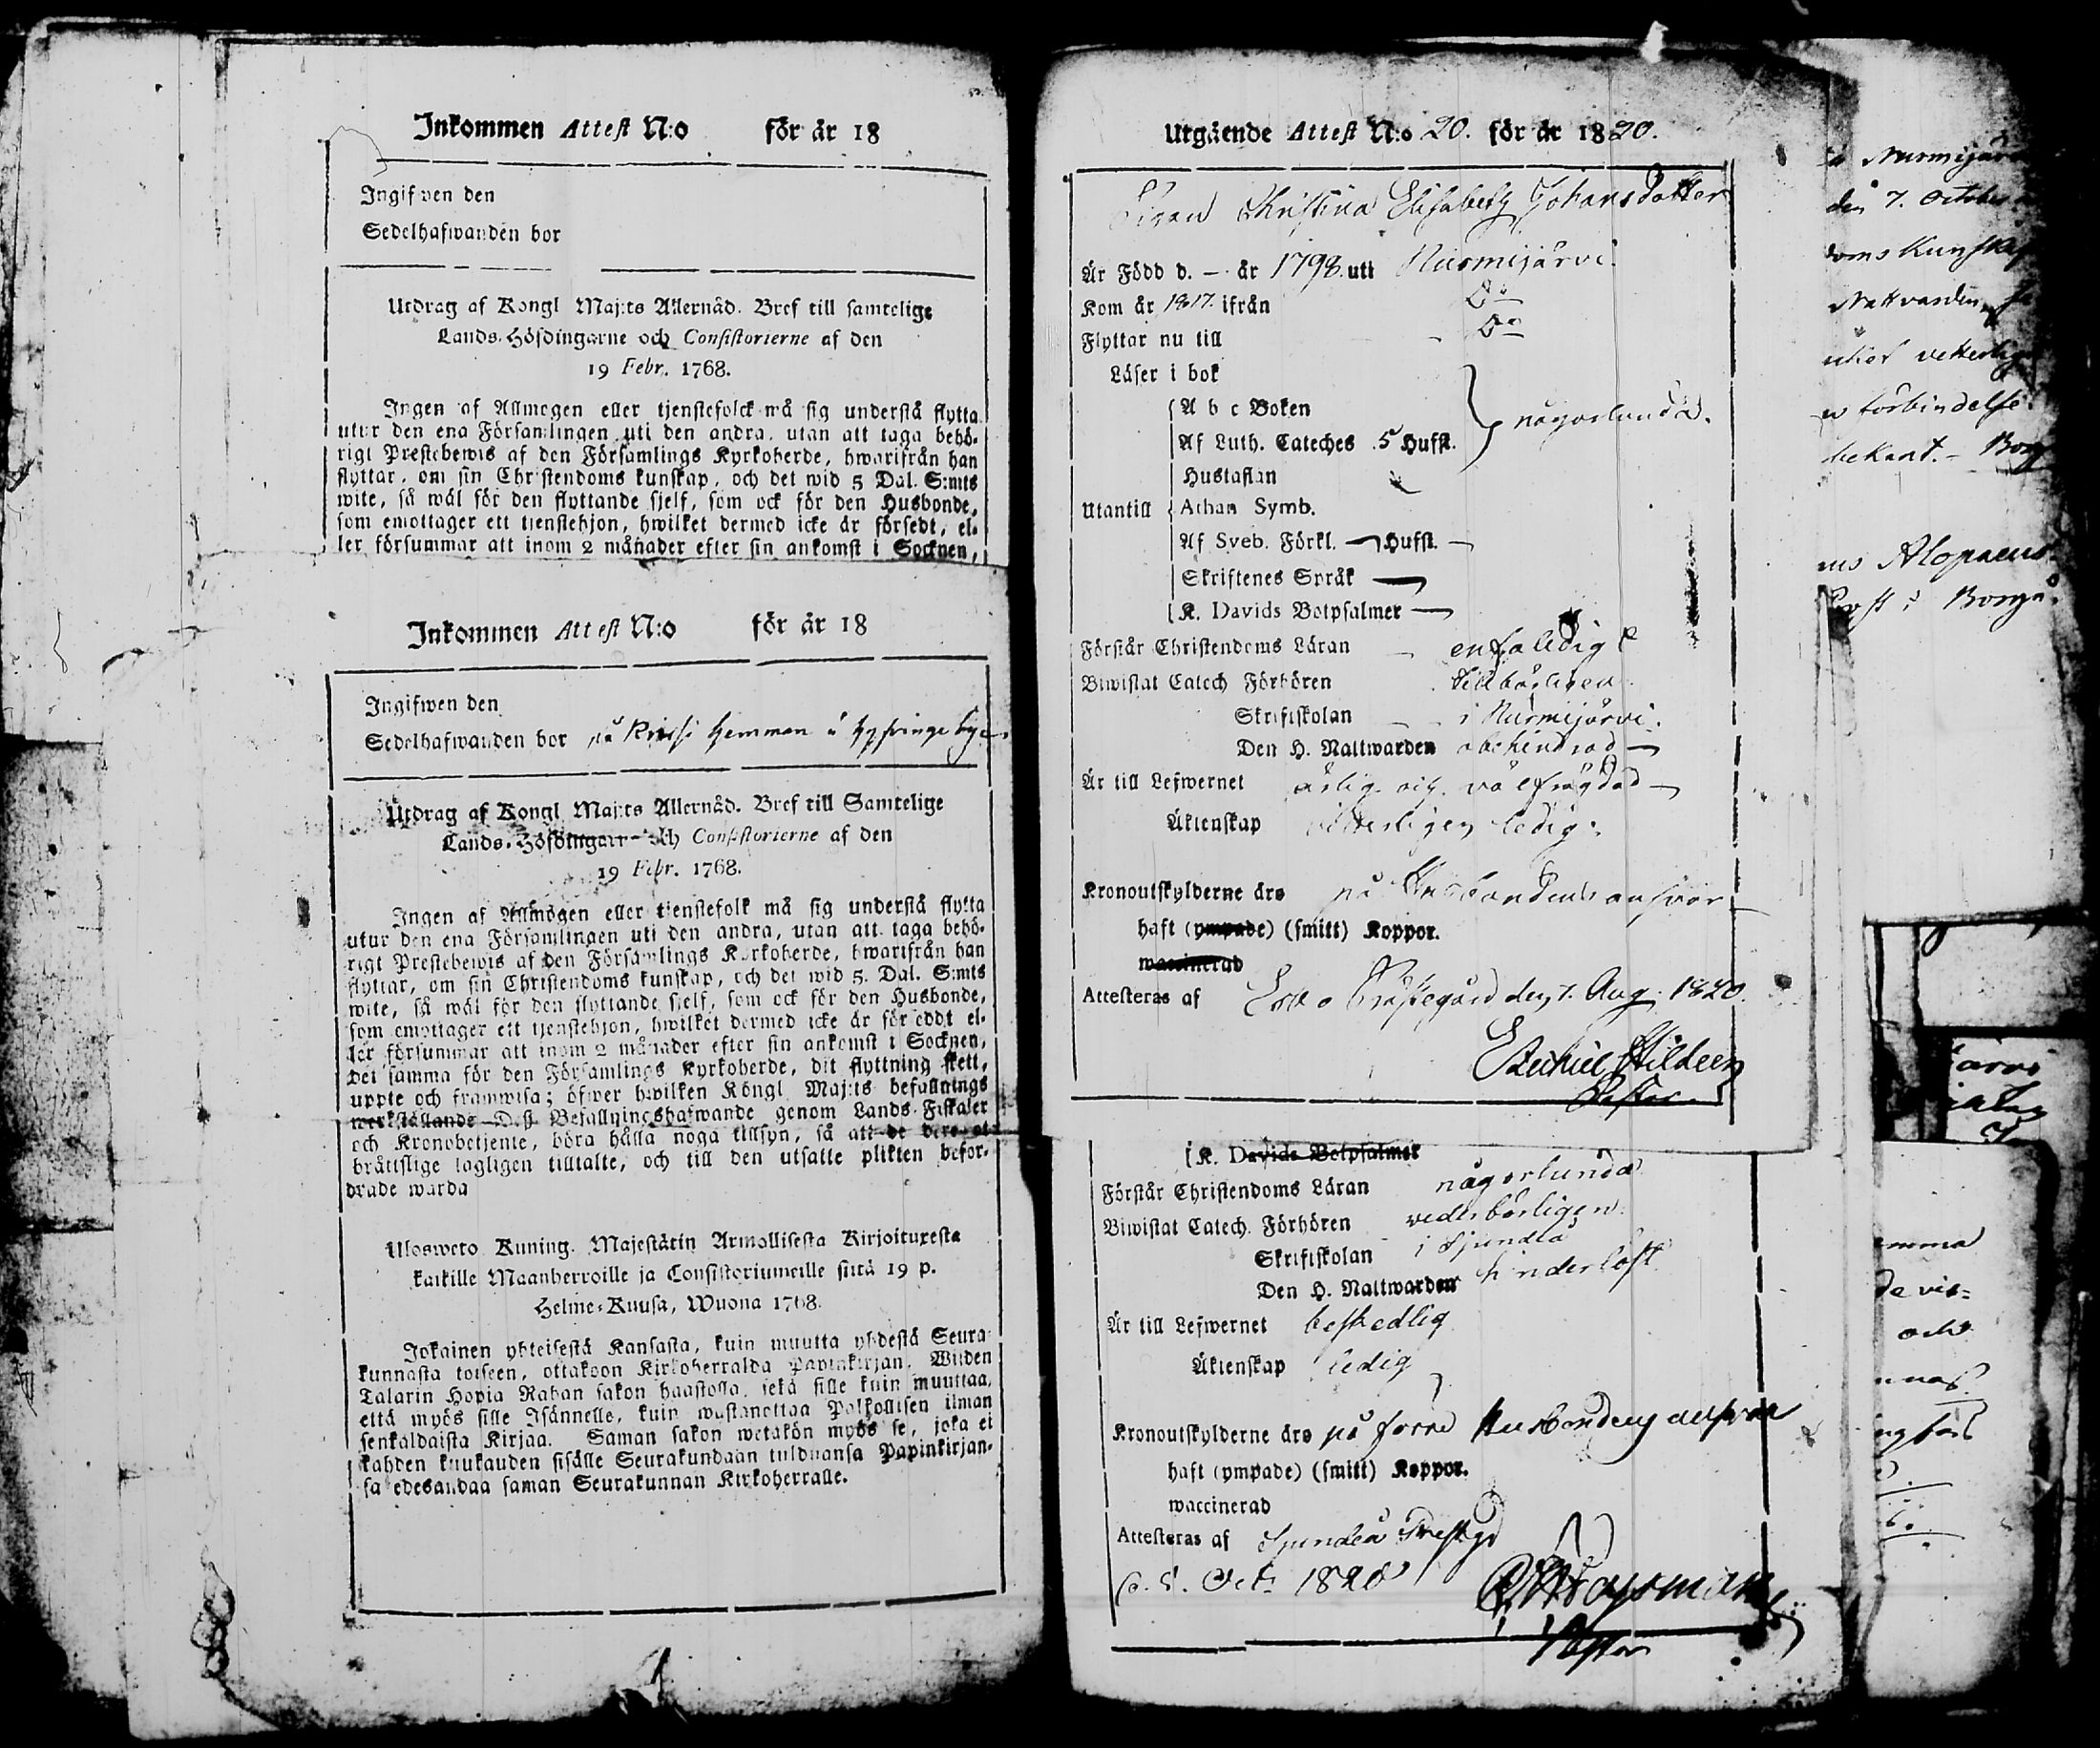 Inkommen Attest N:o för år 18
Ingifwen den
Sedelhafwanden bor
Utdrag af Kongl Maj:ts Allernåd. Bref till samtelige
Lands-Höfdingarne och Consistorierne af den
19 Febr. 1768.
Ingen af Allmogen eller tjenstefolck må sig understå flytta
utur den ena Församlingen uti den andra, utan att taga behö-
rigt Prestebewis af den Församlings Kyrkoherde, hwarifrån han
flyttar, om sin Christendoms kunskap, och det wid 5 Dal. S:mts
wite, så wäl för den flyttande sjelf, som ock för den Husbonde,
som emottager ett tjenstehjon, hwilket dermed icke är försedt, el-
ler försummar att inom 2 månader efter sin ankomst i Socknen,
Inkommen Attest N:o för år 18
Ingifwen den
Sedelhafwanden bor på hemman i by
Utdrag af Kongl Maj:ts Allernåd. Bref till Samtelige
Lands-Höfdingarne och Consistorierne af den
19 Febr. 1768.
Ingen af Allmogen eller tjenstefolk må sig understå flytta
utur den ena Församlingen uti den andra, utan att taga behö-
rigt Prestebewis af den Församlings Kyrkoherde, hwarifrån han
flyttar, om sin Christendoms kunskap, och det wid 5. Dal. S:mts
wite, så wäl för den flyttande sjelf, som ock för den Husbonde,
som emottager ett tjenstehjon, hwilket dermed icke är förseddt el-
ler försummar att inom 2 månader efter sin ankomst i Socknen,
det samma för den Församlings Kyrkoherde, dit flyttning skett,
uppte och framwisa; öfwer hwilken Köngl Maj:ts befallnings
werkställande Dess Befallningshafwande genom Lands-Fiskaler
och Kronobetjente, böra hålla noga tillsyn, så att de
bråttslige lagligen tilltalte, och till den utsatte plikten befor-
drade warda
Ulosweto Kuning. Majestätin Armollisesta Kirjoituxesta
kaikille Maanherroille ja Consistoriumeille siitä 19 p.
Helme-Kuusa, Wuona 1768.
Jokainen yhteisestä Kansasta, kuin muutta yhdestä Seura-
kunnasta toiseen, ottakoon Kirkoherralda Papinkirjan, Wiiden
Talarin Hopia Rahan sakon haastolla, sekä sille kuin muuttaa,
että myös sille Isännelle, kuin wastanottaa Palkollisen ilman
senkaldaista Kirjaa. Saman sakon wetakön myös se, joka ei
kahden kuukauden sisälle Seurakundaan tulduansa Papinkirjan-
sa edesandaa saman Seurakunnan Kirkoherralle.
Utgående Attest N:o 20. för år 1820.
Pigan Christina Elisabeth Johansdotter
Är Född d. – år 1798. uti Nurmijärvi.
Kom år 1817. ifrån Do
Flyttar nu till – Do
Läser i bok
A b c Boken
Af Luth. Cateches 5 Hufst. någorlunda.
Hustaflan
Utantill Athan Symb.
Af Sveb. Förkl. — Hufst. —
Skriftenes Språk —
K. Davids Botpsalmer —
Förstår Christendoms Läran – enfaldigt
Biwistat Catech Förhören tillbörligen
Skriftskolan – i Nurmijärvi.
Den H. Nattwarden obehindrad —
Är till Lefwernet ärlig och välfrägdad —
Äktenskap vitterligen ledig.
Kronoutskylderne äro på Husbondens answar —
haft (ympade) (smitt) Koppor.
waccinerad
Attesteras af Esbo Prästegård den 7. Aug. 1820.
Ezechiel Hildeen
Pastor
K. Davids Botpsalmer
Förstår Christendoms Läran någorlunda
Biwistat Catech. Förhören wederbörligen
Skriftskolan i Sjundeå
Den H. Nattwarden hinderlöst
Är till Lefwernet beskedlig
Äktenskap ledig
Kronoutskylderne äro på förre Husbondens answar
haft (ympade) (smitt) Koppor.
waccinerad
Attesteras af Sjundeå Prestgd
Oct. 1820
Pastor
Nurmijärvi
den 7. October
doms Kunskap
Nattvarden
förbindelse
bekant. – Borg
Alopaeus
i Borgå.
ärvi
och